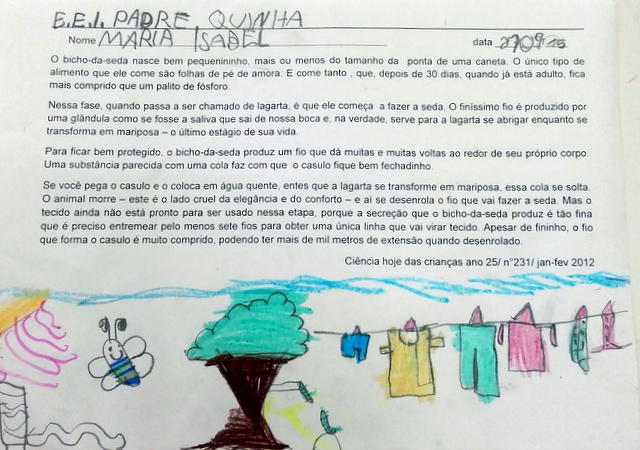 E.E.I. PADRE QUINHA
Nome MARIA ISABEL data 270915
O bicho-da-seda nasce bem pequenininho, mais ou menos do tamanho da ponta de uma caneta. O único tipo de
alimento que ele come são folhas de pé de amora. E come tanto , que, depois de 30 dias, quando já está adulto, fica
mais comprido que um palito de fósforo.
Nessa fase, quando passa a ser chamado de lagarta, é que ele começa a fazer a seda. O finíssimo fio é produzido por
uma glândula como se fosse a saliva que sai de nossa boca e, na verdade, serve para a lagarta se abrigar enquanto se
transforma em mariposa – o último estágio de sua vida.
Para ficar bem protegido, o bicho-da-seda produz um fio que dá muitas e muitas voltas ao redor de seu próprio corpo.
Uma substância parecida com uma cola faz com que o casulo fique bem fechadinho.
Se você pega o casulo e o coloca em água quente, entes que a lagarta se transforme em mariposa, essa cola se solta.
O animal morre – este é o lado cruel da elegância e do conforto – e aí se desenrola o fio que vai fazer a seda. Mas o
tecido ainda não está pronto para ser usado nessa etapa, porque a secreção que o bicho-da-seda produz é tão fina
que é preciso entremear pelo menos sete fios para obter uma única linha que vai virar tecido. Apesar de fininho, o fio
que forma o casulo é muito comprido, podendo ter mais de mil metros de extensão quando desenrolado.
Ciência hoje das crianças ano 25/ n°231/ jan-fev 2012